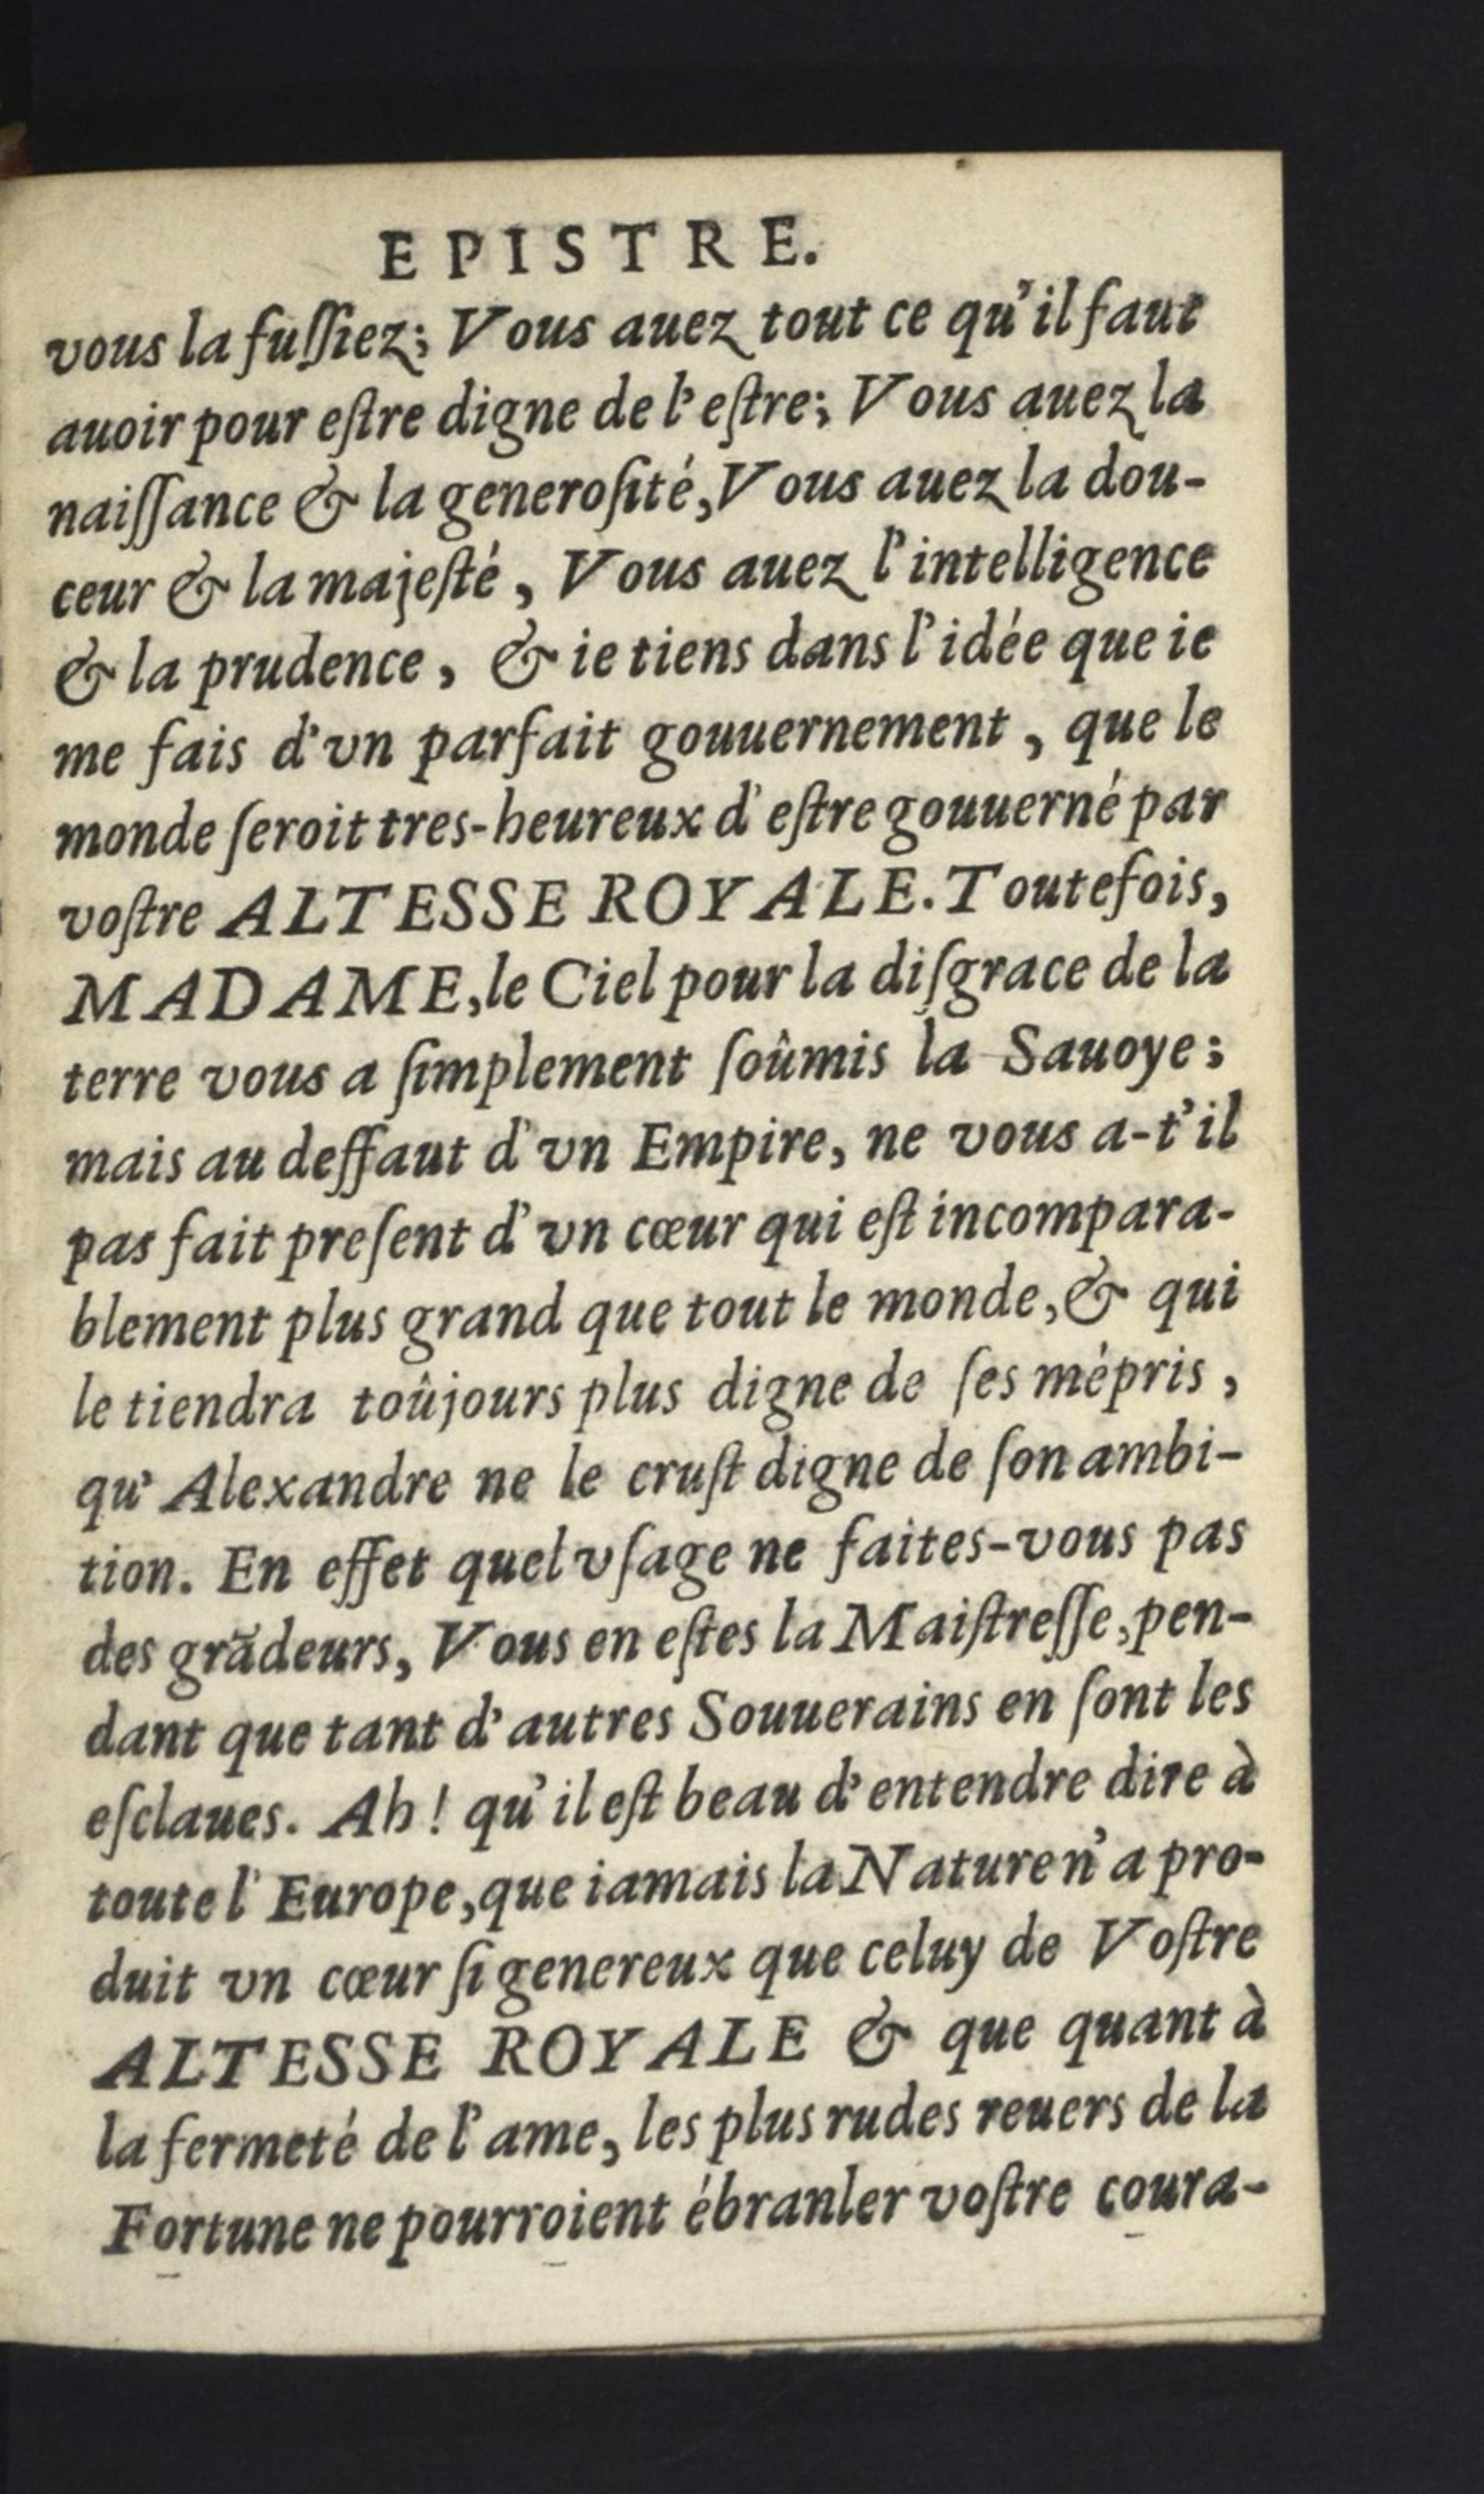 EPISTRE.
vous la fuſſiez; Vous auez tout ce qu'il faut
auoir pour eſtre digne de l'eſtre; Vous auez la
naiſſance & la generoſité, Vous auez la dou-
ceur & la majeſté, Vous auez l'intelligence
& la prudence, & ie tiens dans l'idée que ie
me fais d'vn parfait gouuernement, que le
monde ſeroit tres-heureux d'eſtre gouuerné par
voſtre ALTESSE ROYALE. Toutefois,
MADAME, le Ciel pour la diſgrace de la
terre vous a ſimplement ſoûmis la Sauoye;
mais au deffaut d'vn Empire, ne vous a-t'il
pas fait preſent d'vn cœur qui eſt incompara-
blement plus grand que tout le monde, & qui
le tiendra toûjours plus digne de ſes mépris,
qu'Alexandre ne le cruſt digne de ſon ambi-
tion. En effet quel vſage ne faites-vous pas
des grãdeurs, Vous en eſtes la Maiſtreſſe, pen-
dant que tant d'autres Souuerains en ſont les
eſclaues. Ah! qu'il eſt beau d'entendre dire à
toute l'Europe, que iamais la Nature n'a pro-
duit vn cœur ſi genereux que celuy de Voſtre
ALTESSE ROYALE & que quant à
la fermeté de l'ame, les plus rudes reuers de la
Fortune ne pourroient ébranler voſtre coura-